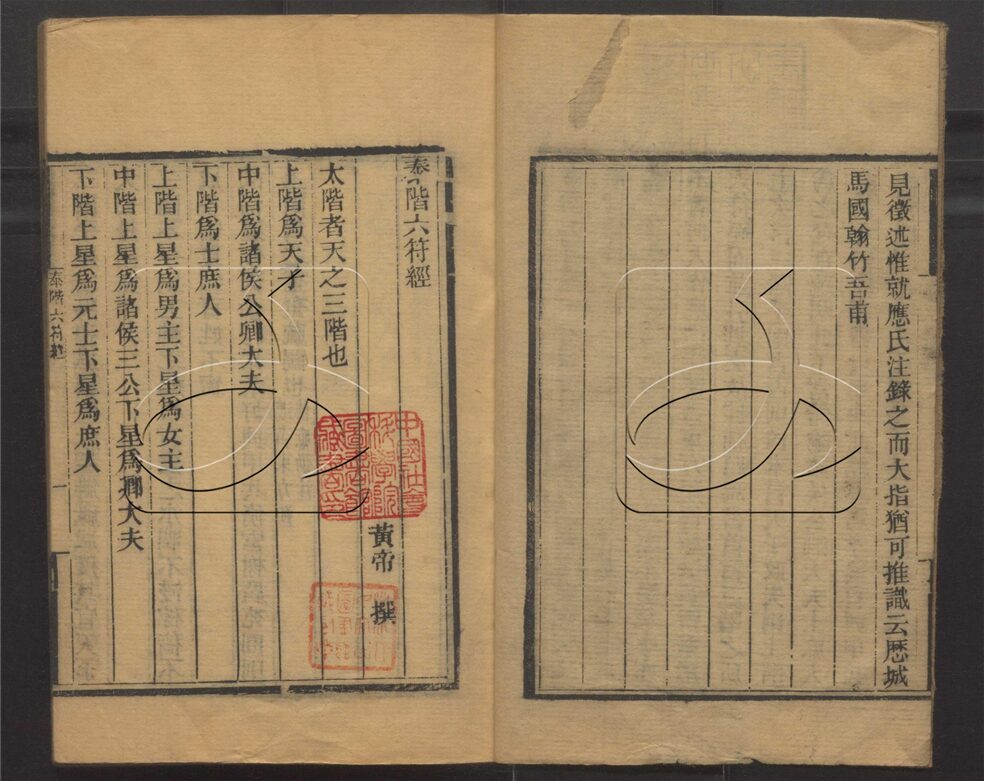 見徵述惟就應氏注錄之而大指猶可推識云厯城
馬國翰竹吾甫
泰階六符經
黃帝 撰
太階者天之三階也
上階爲天子
中階爲諸侯公卿大夫
下階爲士庶人
上階上星爲男主下星爲女主
中階上星爲諸侯三公下星爲卿大夫
下階上星爲元士下星爲庶人
泰階六符經
一
中國社會
科學院
圖書館
藏書印